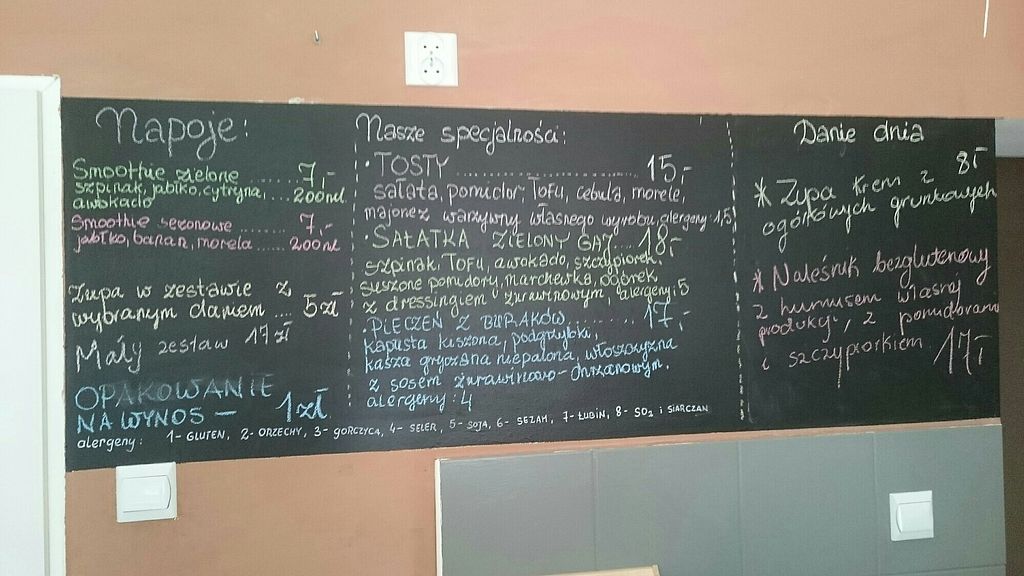 Napoje:
Smoothie zielone ........ 7,-
szpinak, jabłko, cytryna, .... 200ml
awokado
Smoothie sezonowe ........ 7,-
jabłko, banan, morela ....... 200ml
Zupa w zestawie z
wybranym daniem ... 5zł
Mały zestaw 17zł
OPAKOWANIE
NA WYNOS — 1zł
Nasze specjalności:
• TOSTY ........................ 15,-
sałata, pomidor, Tofu, cebula, morele,
majonez warzywny własnego wyrobu, alergeny: 1,5
• SAŁATKA ZIELONY GAJ... 18,-
szpinak, Tofu, awokado, szczypiorek,
suszone pomidory, marchewka, ogórek,
z dressingiem żurawinowym, alergeny: 5
• PIECZEŃ Z BURAKÓW............ 17,-
kapusta kiszona, podgrzybki,
kasza gryczana niepalona, włoszczyzna
z sosem żurawinowo-chrzanowym.
alergeny: 4
Danie dnia
8,-
* Zupa krem z
ogórków gruntowych
* Naleśnik bezglutenowy
z humusem własnej
produkcji, z pomidorami
i szczypiorkiem 17,-
alergeny: 1- GLUTEN, 2- ORZECHY, 3- GORCZYCA, 4- SELER, 5- SOJA, 6- SEZAM, 7- ŁUBIN, 8- SO2 i SIARCZAN